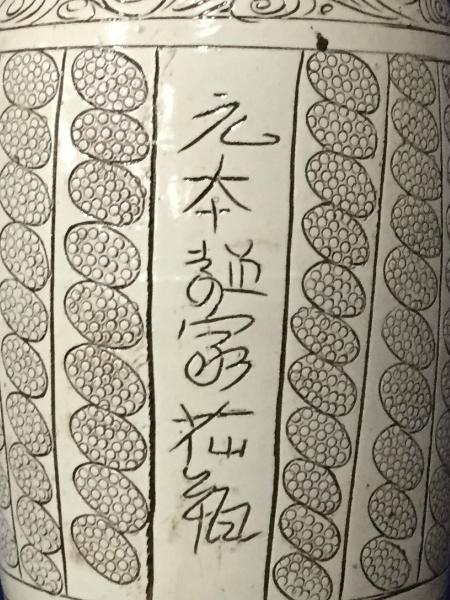 元本家花瓶